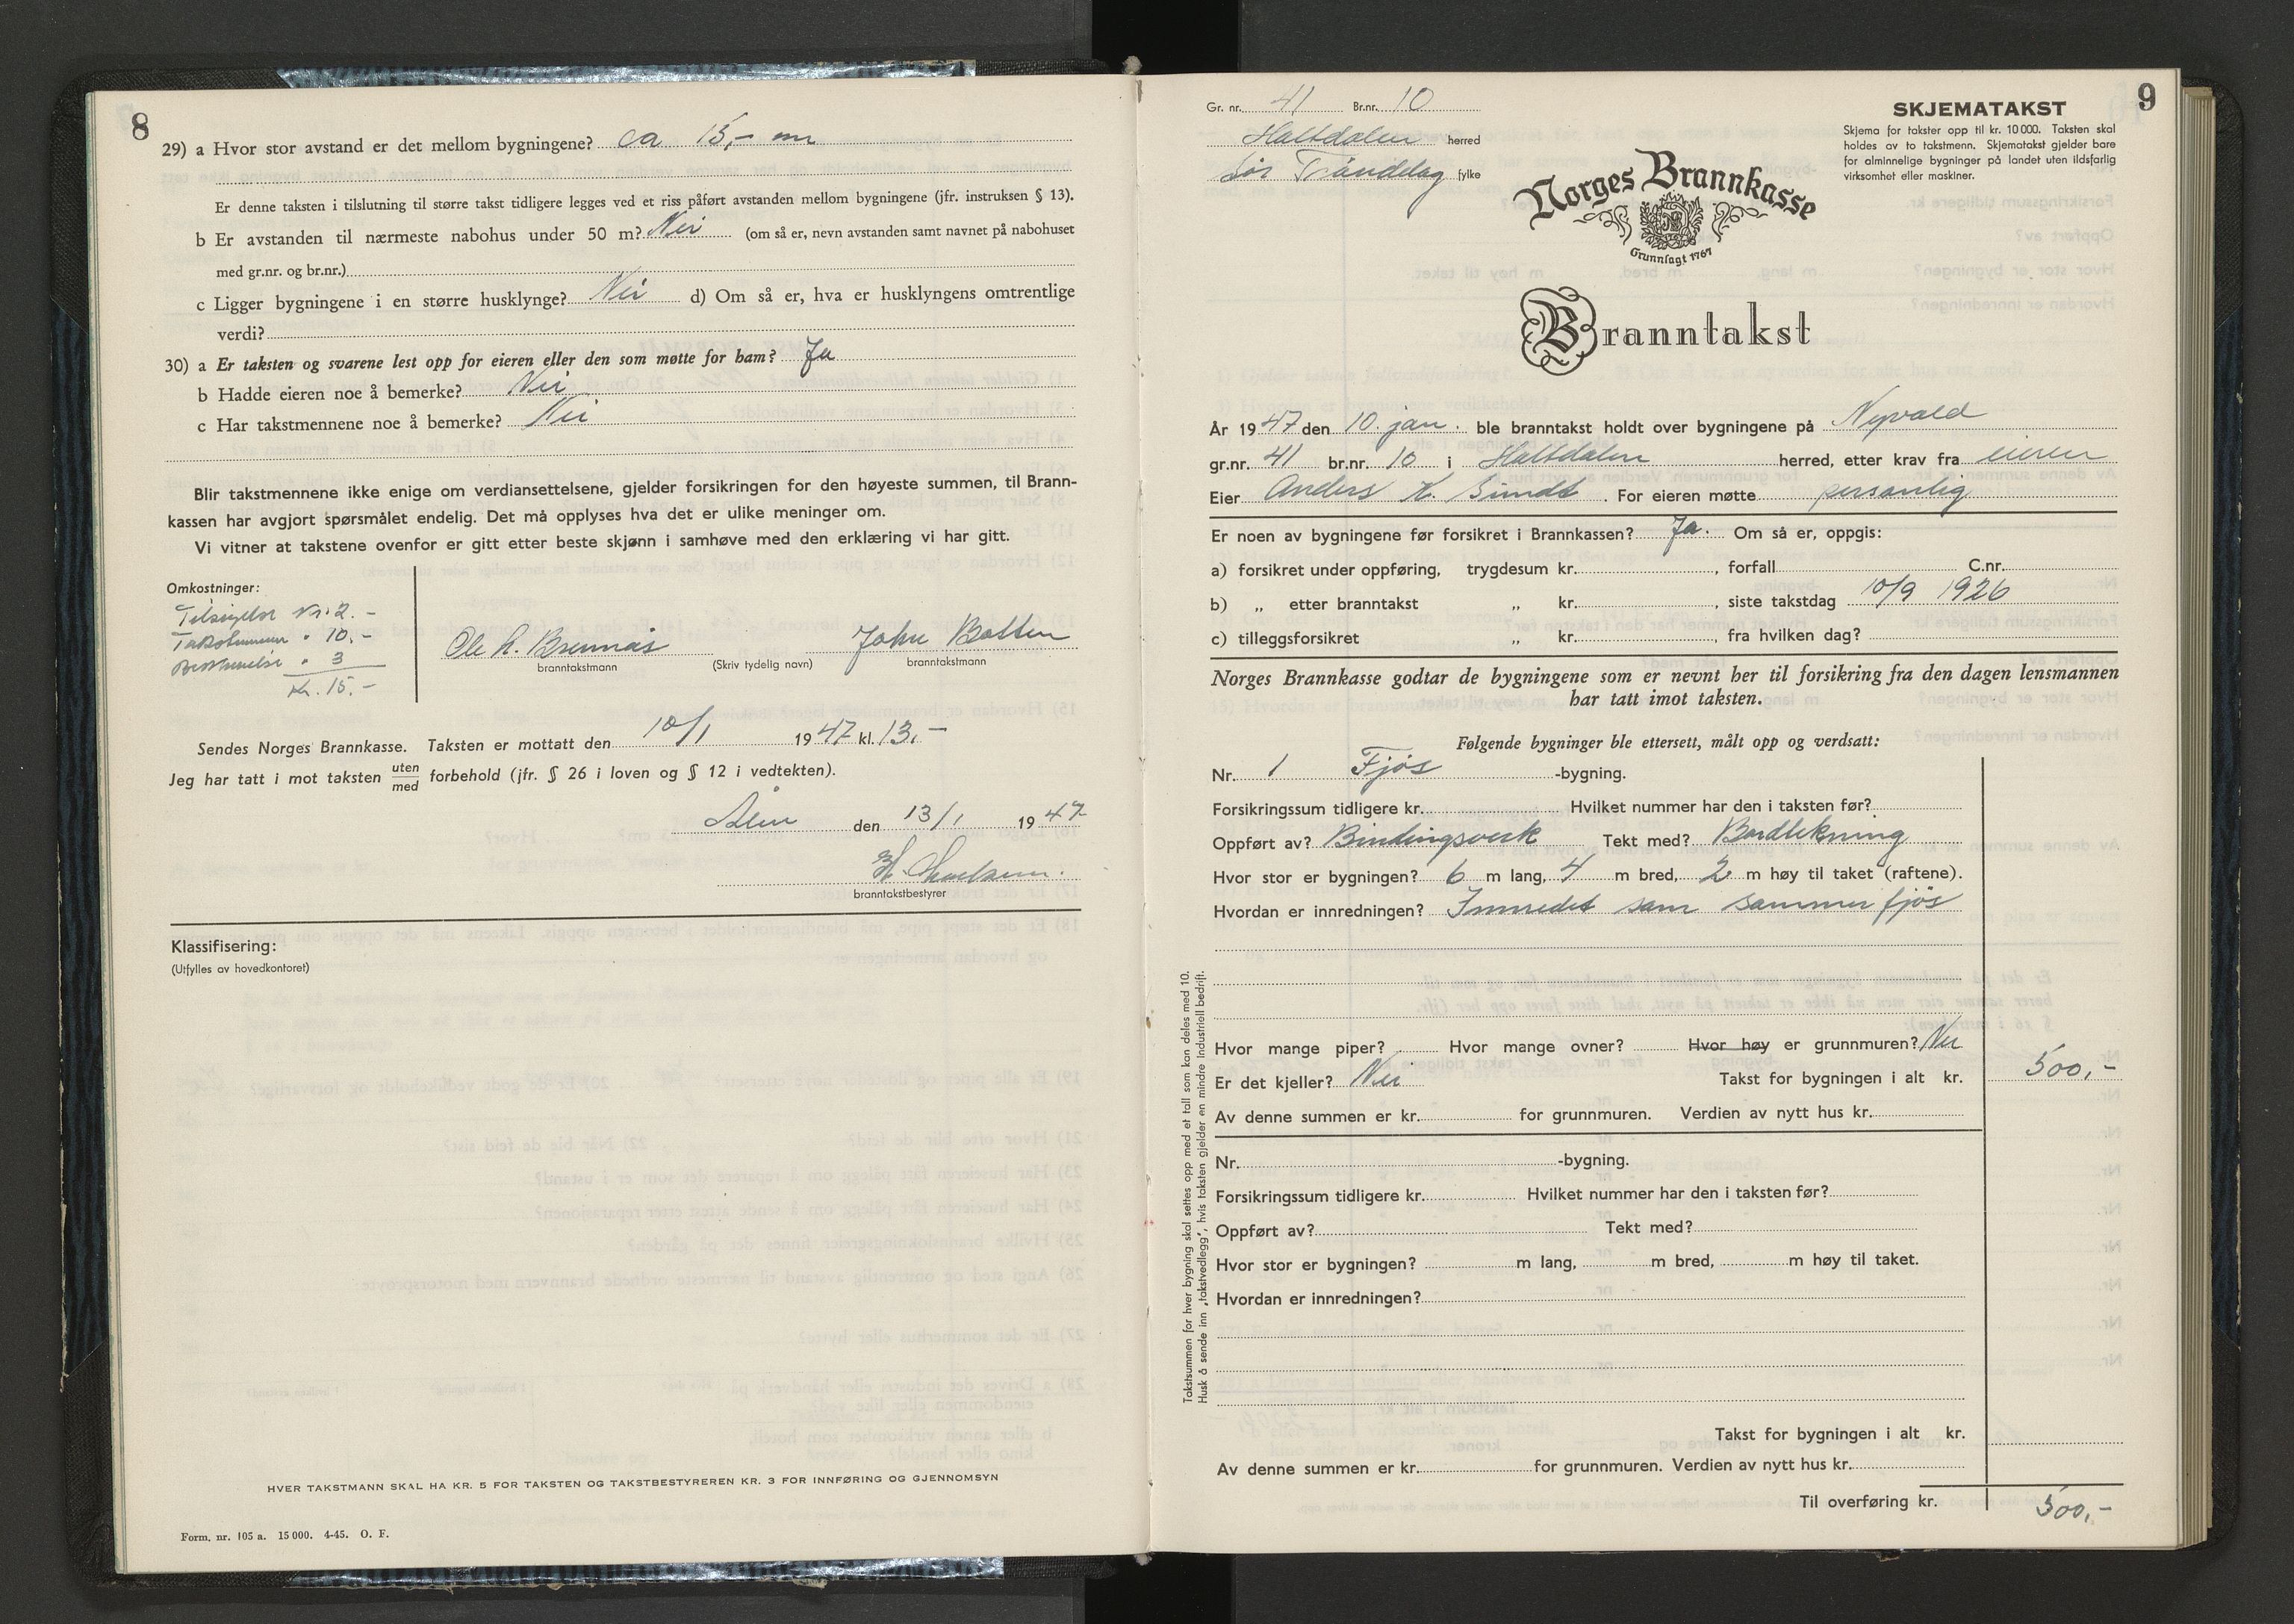 8
29) a Hvor stor avstand er det mellom bygningene? ca 15,- m
Er denne taksten i tilslutning til større takst tidligere legges ved et riss påført avstanden mellom bygningene (jfr. instruksen § 13).
b Er avstanden til nærmeste nabohus under 50 m? Nei (om så er, nevn avstanden samt navnet på nabohuset
med gr.nr. og br.nr.)
c Ligger bygningene i en større husklynge? Nei d) Om så er, hva er husklyngens omtrentlige
verdi?
30) a Er taksten og svarene lest opp for eieren eller den som møtte for ham? Ja
b Hadde eieren noe å bemerke? Nei
c Har takstmennene noe å bemerke? Nei
Blir takstmennene ikke enige om verdiansettelsene, gjelder forsikringen for den høyeste summen, til Brann-
kassen har avgjort spørsmålet endelig. Det må opplyses hva det er ulike meninger om.
Vi vitner at takstene ovenfor er gitt etter beste skjønn i samhøve med den erklæring vi har gitt.
Omkostninger:
Kr. 2.-
Takstmenn " 10.-
" 3
Kr. 15.-
Ole h. Brennås John Botten
branntakstmann (Skriv tydelig navn) branntakstmann
Sendes Norges Brannkasse. Taksten er mottatt den 10/1 1947 kl. 13,-
Jeg har tatt i mot taksten uten/med forbehold (jfr. § 26 i loven og § 12 i vedtekten).
Ålen den 13/1 1947
branntakstbestyrer
Klassifisering:
(Utfylles av hovedkontoret)
HVER TAKSTMANN SKAL HA KR. 5 FOR TAKSTEN OG TAKSTBESTYREREN KR. 3 FOR INNFØRING OG GJENNOMSYN
Form. nr. 105 a. 15 000. 4-45. O. F.
9
Gr. nr. 41 Br.nr. 10
Haltdalen herred
Sør Trøndelag fylke
SKJEMATAKST
Skjema for takster opp til kr. 10 000. Taksten skal
holdes av to takstmenn. Skjematakst gjelder bare
for alminnelige bygninger på landet uten ildsfarlig
virksomhet eller maskiner.
Norges Brannkasse
Grunnlagt 1767
Branntakst
År 1947 den 10. jan. ble branntakst holdt over bygningene på Nyvold
gr.nr. 41 br.nr. 10 i Haltdalen herred, etter krav fra eieren
Eier Anders K. Sundt. For eieren møtte personlig
Er noen av bygningene før forsikret i Brannkassen? Ja. Om så er, oppgis:
a) forsikret under oppføring, trygdesum kr. , forfall C.nr.
b) „ etter branntakst „ kr. , siste takstdag 10/9 1926
c) tilleggsforsikret „ kr. , fra hvilken dag?
Norges Brannkasse godtar de bygningene som er nevnt her til forsikring fra den dagen lensmannen
har tatt imot taksten.
Følgende bygninger ble ettersett, målt opp og verdsatt:
Nr. 1 Fjøs -bygning.
Forsikringssum tidligere kr. Hvilket nummer har den i taksten før?
Oppført av? Bindingsverk Tekt med? Bordtekning
Hvor stor er bygningen? 6 m lang, 4 m bred, 2 m høy til taket (raftene).
Hvordan er innredningen? Innredet som sommerfjøs
Hvor mange piper? Hvor mange ovner? Hvor høy er grunnmuren? Nei
Er det kjeller? Nei Takst for bygningen i alt kr. 500,-
Av denne summen er kr. for grunnmuren. Verdien av nytt hus kr.
Nr. -bygning.
Forsikringssum tidligere kr. Hvilket nummer har den i taksten før?
Oppført av? Tekt med?
Hvor stor er bygningen? m lang, m bred, m høy til taket.
Hvordan er innredningen?
Takst for bygningen i alt kr.
Av denne summen er kr. for grunnmuren. Verdien av nytt hus kr.
Til overføring kr. 500,-
Takstsummen for hver bygning skal settes opp med et tall som kan deles med 10.
Husk å sende inn „takstvedlegg", hvis taksten gjelder en mindre industriell bedrift.